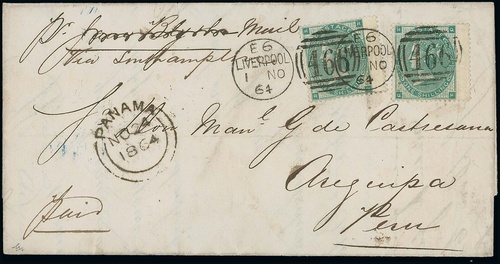 Pr Mail
Via Southampton
E6
LIVERPOOL
1 NO
64
466
POSTAGE
E6
LIVERPOOL
NO
64
466
PANAMA
NO 24
1864
Sr Don Manl G de Castresana
Arequipa
Peru
Paid